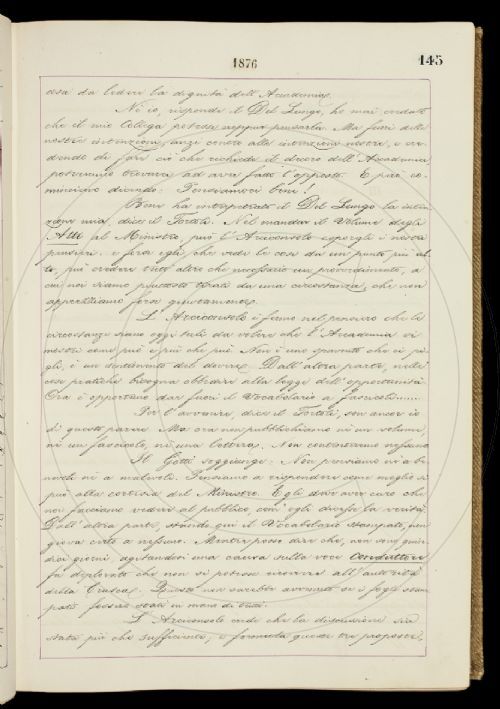 1876
145
osa da ledere la dignità dell'Accademia.
Nè io, risponde il Del Lungo, ho mai creduto
che il mio Collega potesse neppur pensarla. Ma fuori delle
nostre intenzioni, anzi contro alle intenzioni nostre, e cre-
dendo di fare ciò che richiede il decoro dell'Accademia
potremmo trovarci ad aver fatto l'opposto. E però co-
mincio dicendo: Pensiamoci bene!
Bene ha interpretato il Del Lungo la inten-
zione mia, dice il Tortoli. Nel mandar il Volume degli
Atti al Ministro, può l'Arciconsolo esporgli i nostri
pensieri: e forse egli che vede le cose da un punto più al-
to, può credere tutt'altro che necessario un provvedimento, a
cui noi siamo piuttosto tirati da una circostanza, che non
apprezziamo forse giustamente.
L'Arciconsolo è fermo nel pensiero che le
circostanze siano oggi tali da volere che l'Accademia si
mostri come può e più che può. Non è uno spavento che ci pi-
gli, è un sentimento del dovere. Dall'altra parte, nelle
cose pratiche bisogna obbedire alla legge dell'opportunità.
Ora è opportuno dar fuori il Vocabolario a fascicoli......
Per l'avvenire, dice il Tortoli, son ancor io
di questo parere. Ma ora non pubblichiamo nè un volume,
nè un fascicolo, nè una lettera. Non contenteremo nessuno
Il Gotti soggiunge: Non pensiamo nè a be-
nevoli nè a malevoli. Pensiamo a rispondere come meglio si
può alla cortesia del Ministro. Egli deve aver caro che
noi facciamo vedere al pubblico, com'egli dicesse la verità.
Dall'altra parte, stando qui il Vocabolario stampato, non
giova certo a nessuno. Mentre posso dire che, non son quin-
dici giorni agitandosi una causa sulla voce Conduttore
fu deplorato che non si potesse ricorrere all'autorità
della Crusca. Questo non sarebbe avvenuto se i fogli stam-
pati fossero stati in mano di tutti.
L'Arciconsolo crede che la discussione sia
stata più che sufficiente, e formula queste tre proposte.